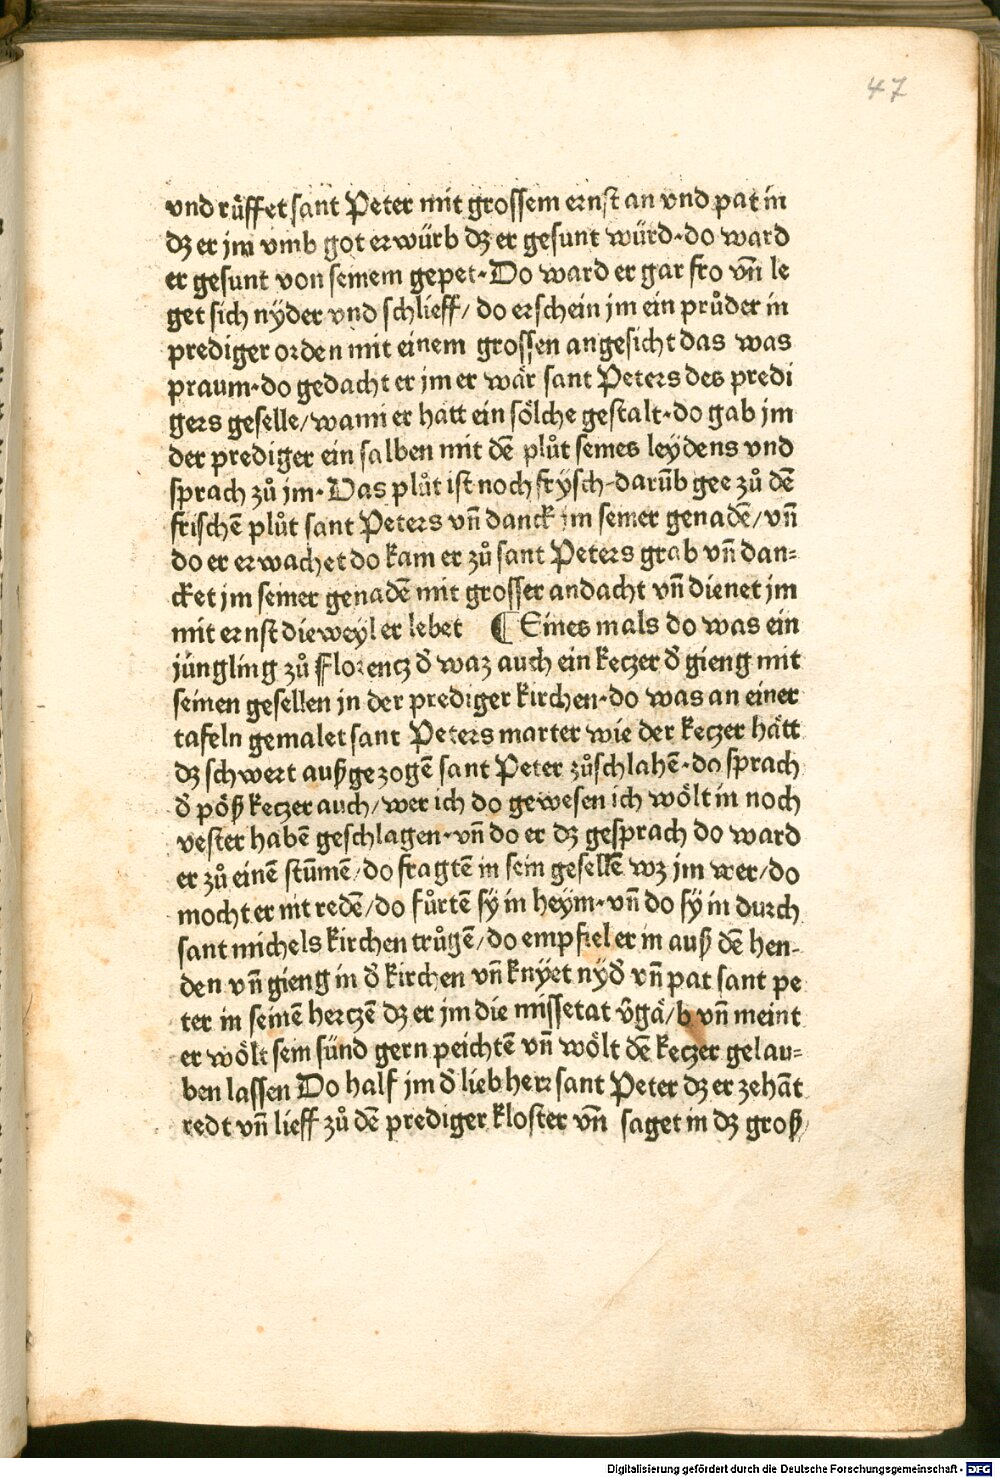 47
vnd růffet sant Peter mit grossem ernst an vnd pat in
dz er jm vmb got erwürb dz er gesunt würd·do ward
er gesunt von seinem gepet·Do ward er gar fro vn̄ le
get sich nyder vnd schlieff/ do erschein jm ein průder in
prediger orden mit einem grossen angesicht das was
praum·do gedacht er jm er wär sant Peters des predi
gers geselle/wann er hatt ein sölche gestalt·do gab jm
der prediger ein salben mit dē plůt seines leydens vnd
sprach zů jm·Das plůt ist noch frysch·darūb gee zů dē
frischē plůt sant Peters vn̄ danck jm seiner genadē/vn̄
do er erwachet do kam er zů sant Peters grab vn̄ dan=
cket jm seiner genadē mit grosser andacht vn̄ dienet jm
mit ernst die weyl er lebet ¶ Eines mals do was ein
jüngling zů Florencz d̄ waz auch ein keczer d̄ gieng mit
seinen gesellen in der prediger kirchen·do was an einer
tafeln gemalet sant Peters marter wie der keczer hätt
dz schwert außgezogē sant Peter zůschlahē·do sprach
d̄ pöß keczer auch/wer ich do gewesen ich wölt in noch
vester habē geschlagen·vn̄ do er dz gesprach do ward
er zů einē stūmē/do fragtē in sein gesellē wz jm wer/do
mocht er nit redē/do fůrtē sy in heym·vn̄ do sy in durch
sant michels kirchen trůgē/do empfiel er in auß dē hen-
den vn̄ gieng in d̄ kirchen vn̄ knyet nyd̄ vn̄ pat sant pe
ter in seinē herczē dz er jm die missetat v̄gä/b vn̄ meint
er wölt sein sünd gern peichtē vn̄ wölt dē keczer gelau=
ben lassen Do half jm d̄ lieb herr sant Peter dz er zehāt
redt vn̄ lieff zů dē prediger kloster vn̄ saget in dz groß/
Digitalisierung gefördert durch die Deutsche Forschungsgemeinschaft - DFG